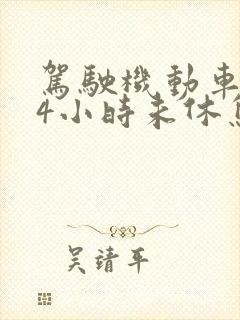 駕駛機動車
4小時未休息
吴靖平